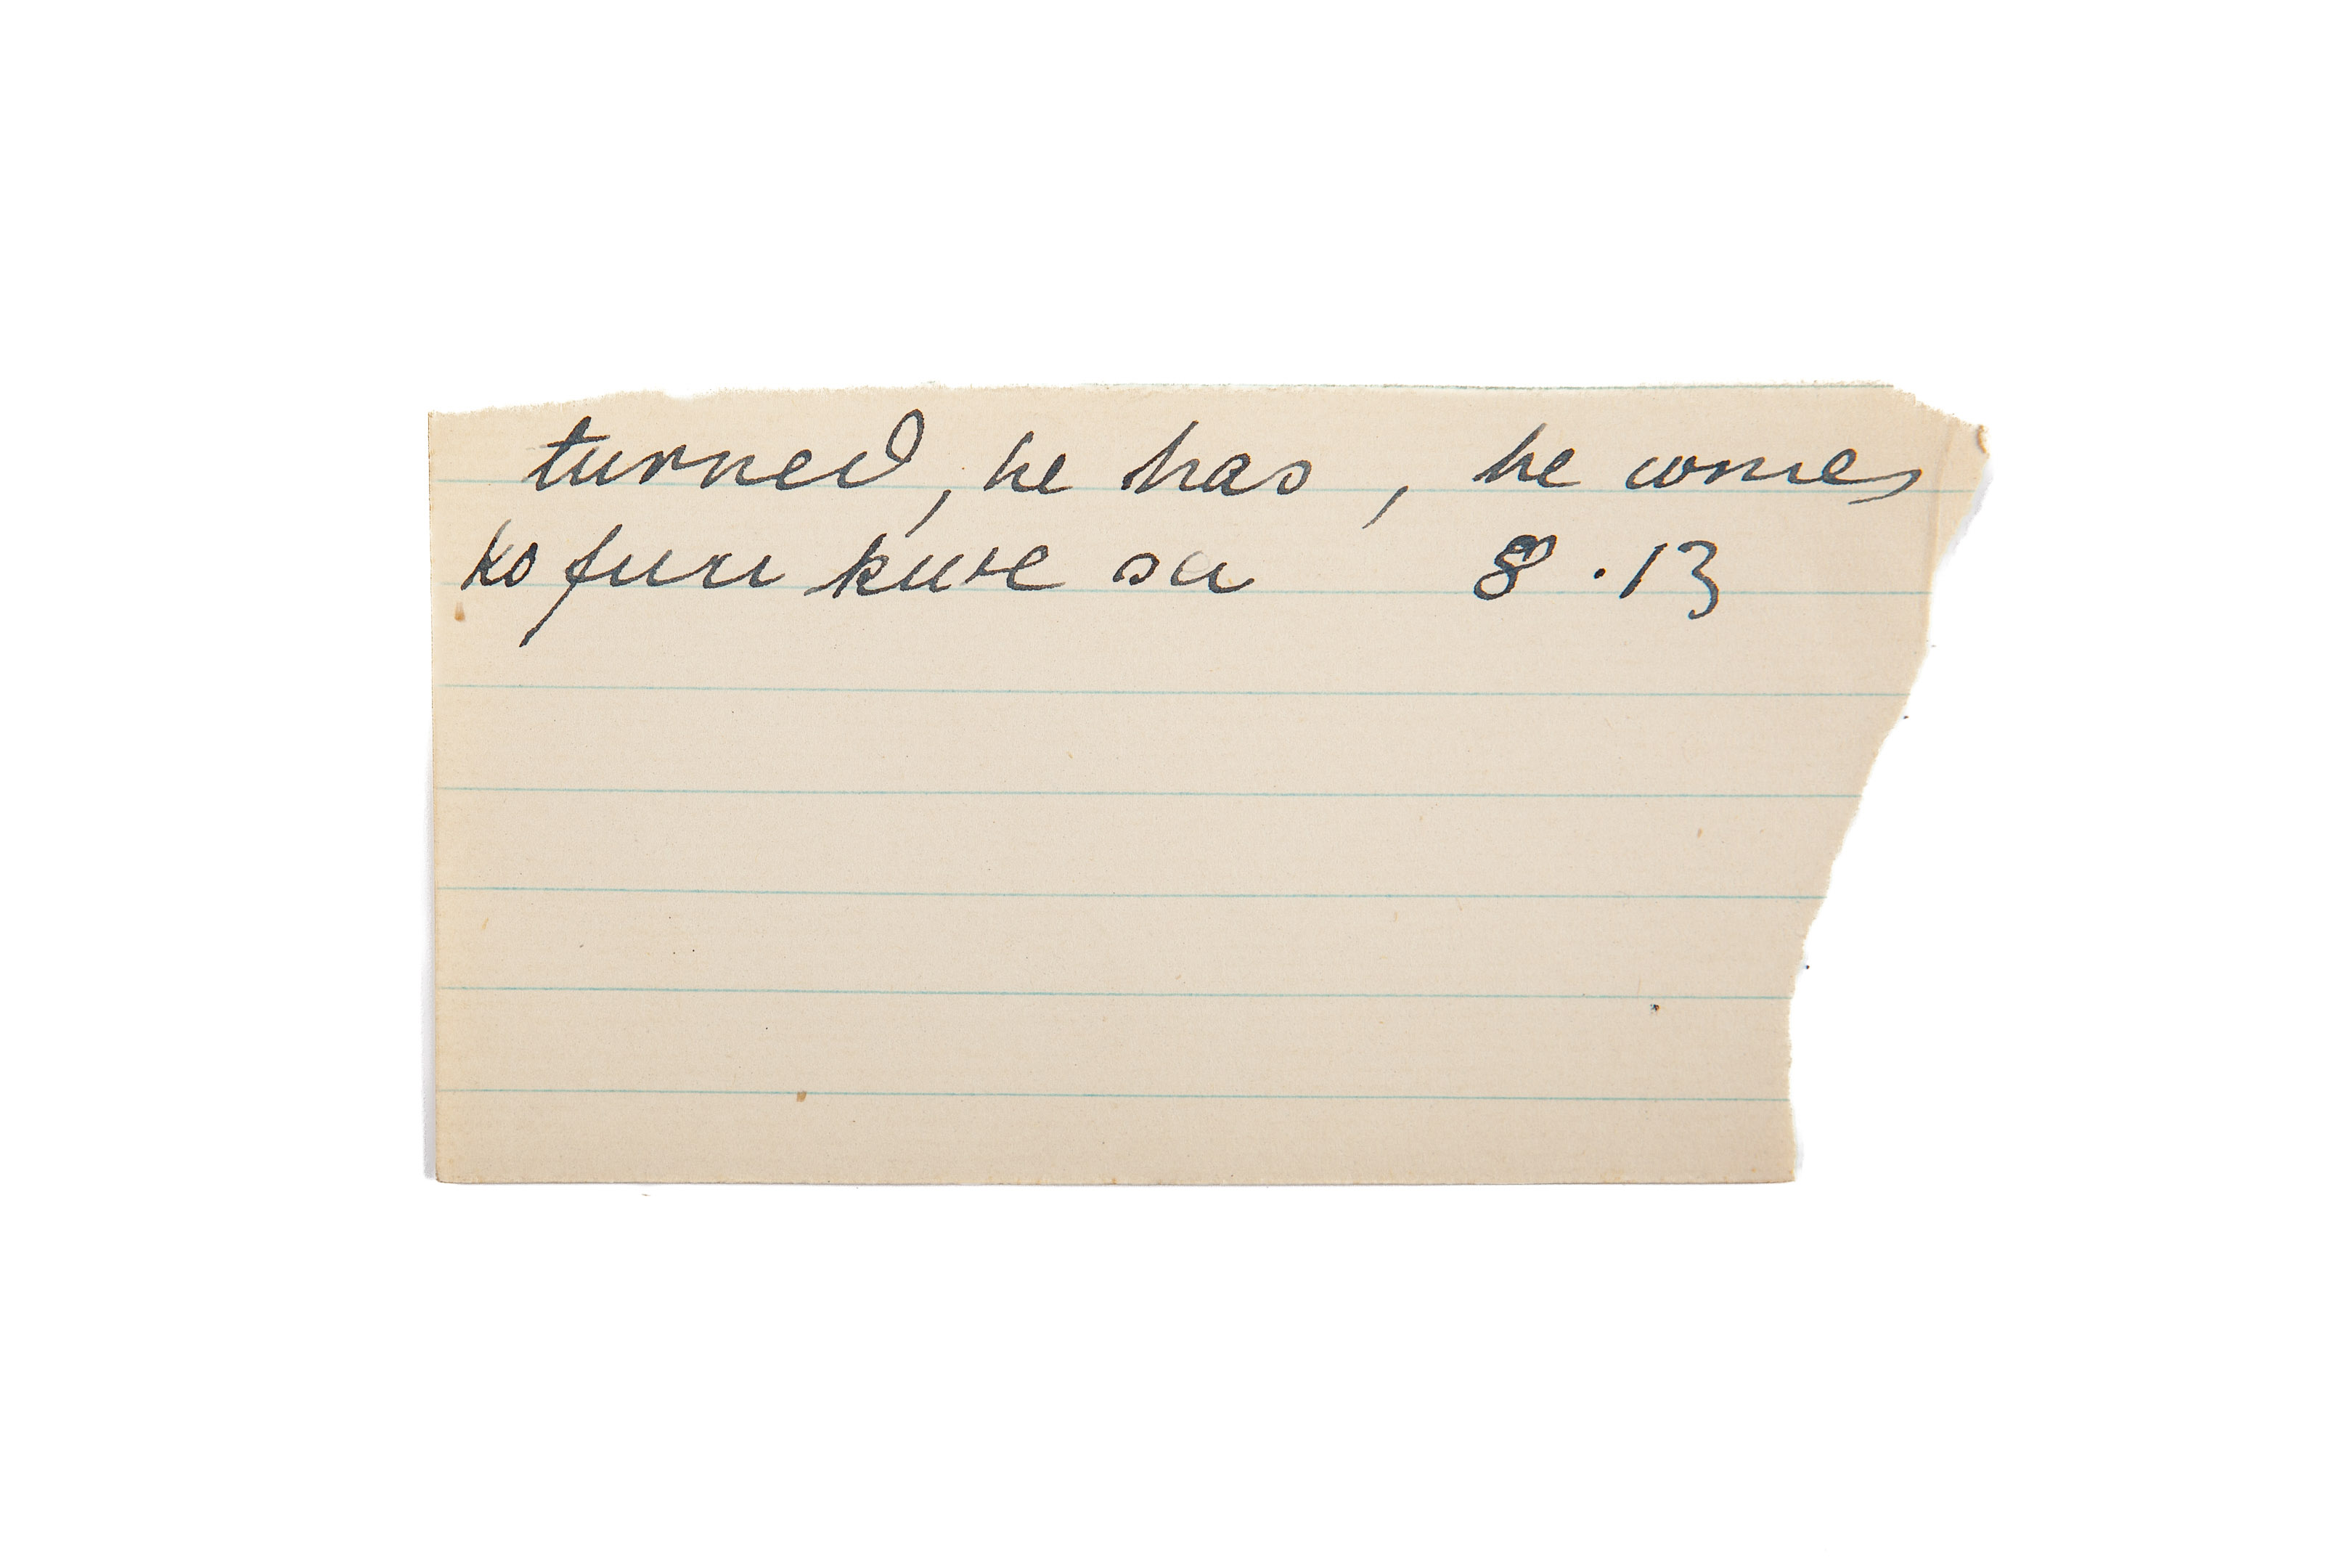 turned, he has, he comes
ko furi kure sa 8.13